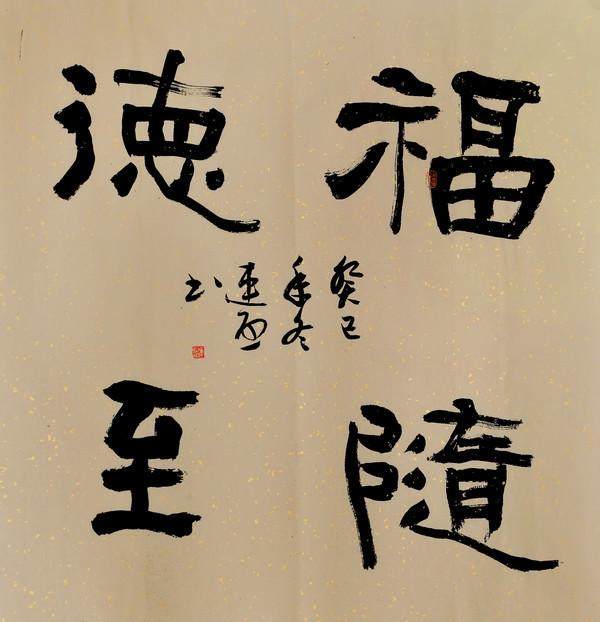 福隨
德至
癸巳
年冬
連
书